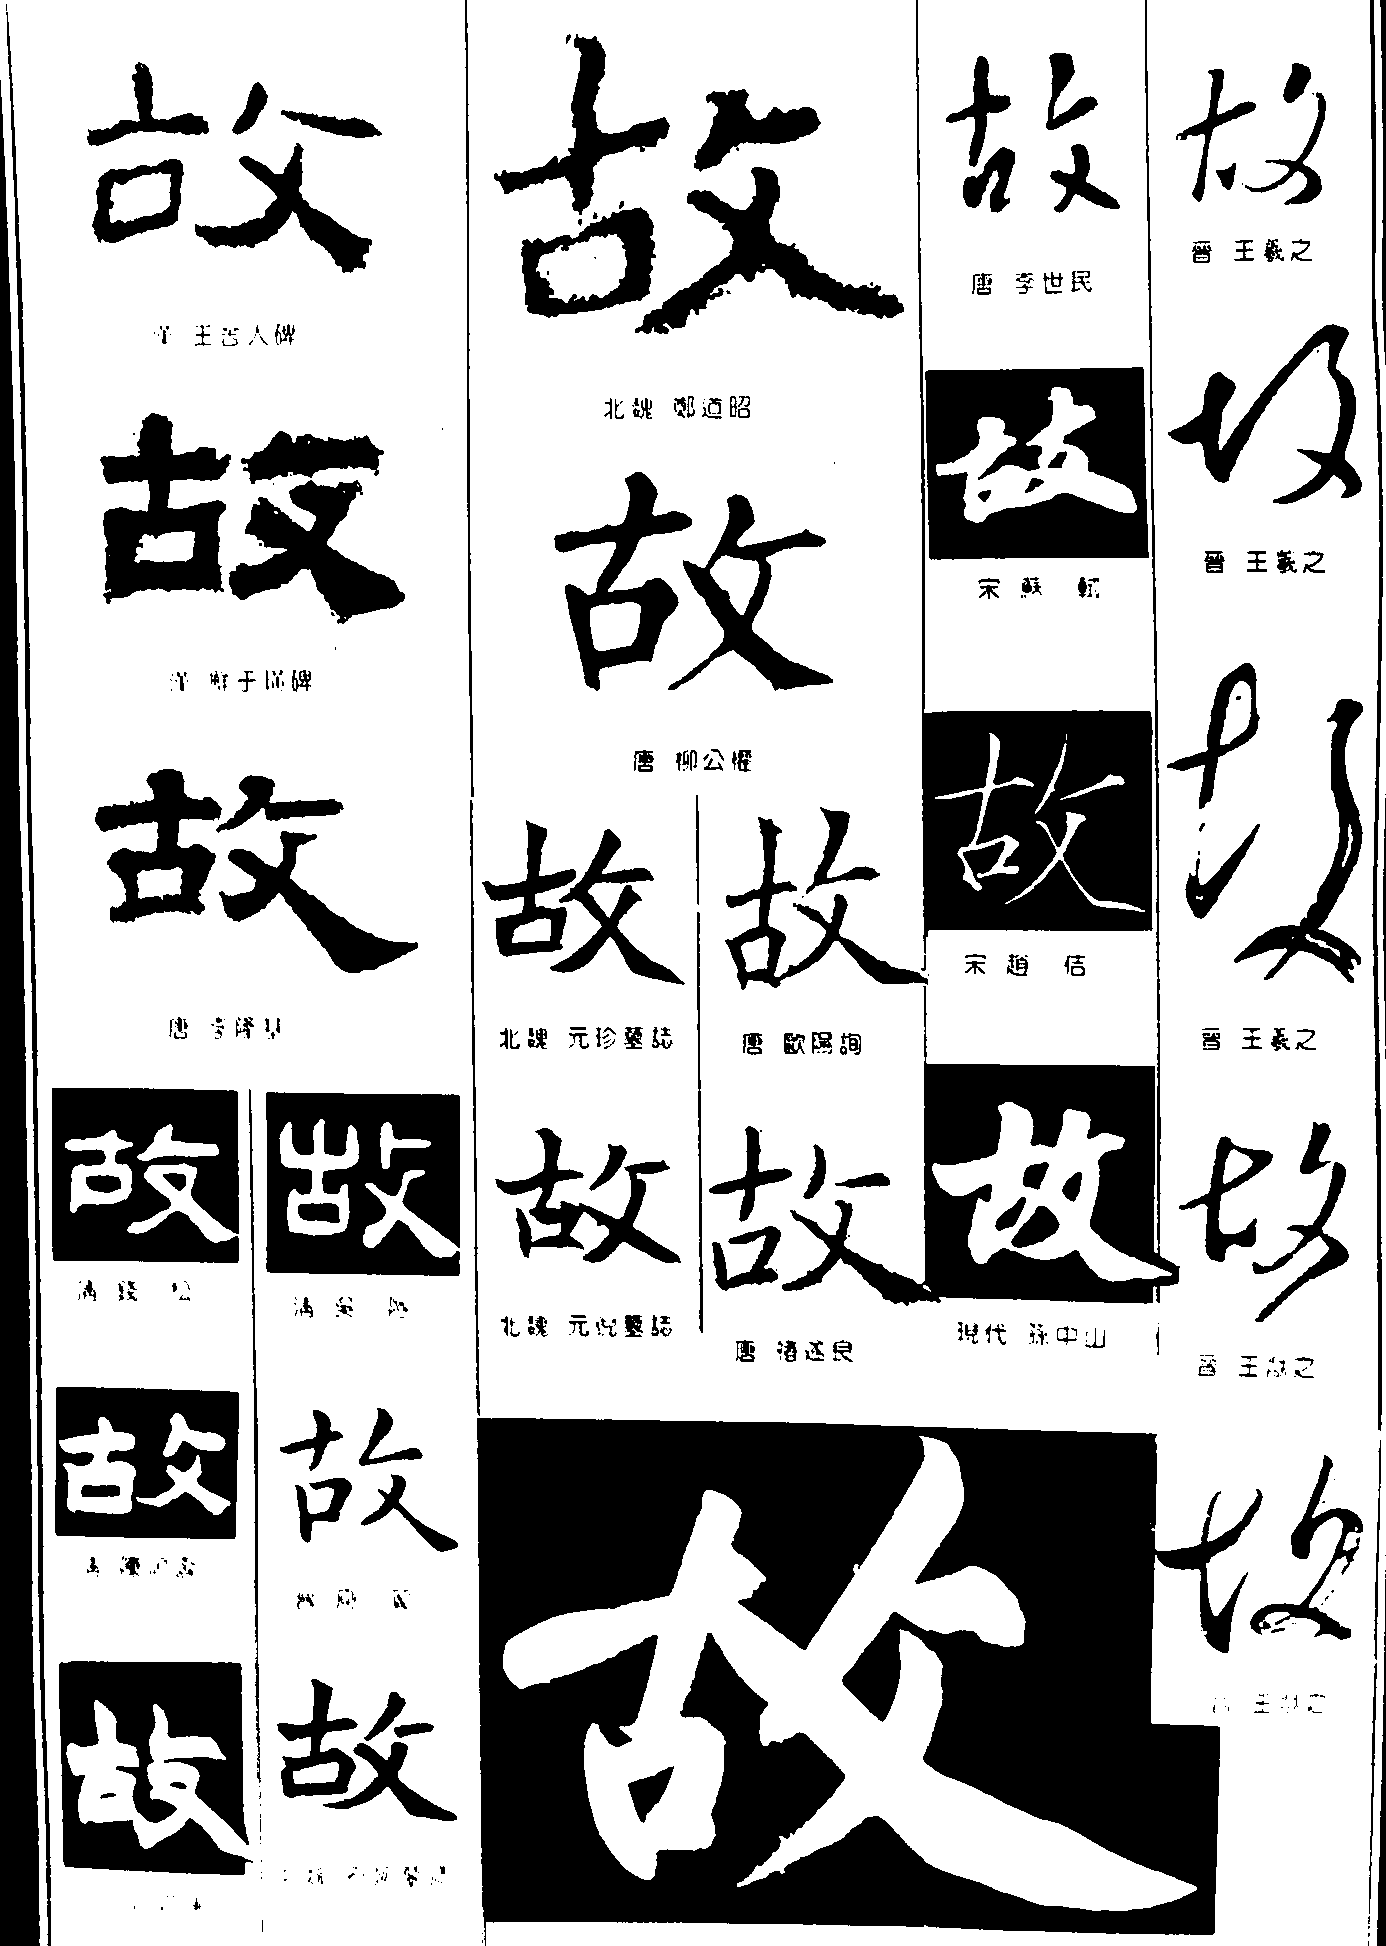 故
晋 王羲之
故
晋 王羲之
故
晋 王羲之
故
晋 王献之
故
晋 王献之
故
唐 李世民
故
宋 蘇 軾
故
宋 趙 佶
故
現代 孫中山
故
北魏 鄭道昭
故
唐 柳公權
故
唐 歐陽詢
故
唐 褚遂良
故
北魏 元珍墓誌
故
北魏 元倪墓誌
故
故
漢 王舍人碑
故
漢 鮮于璜碑
故
唐 李隆基
故
故
故
故
清 錢 松
故
故